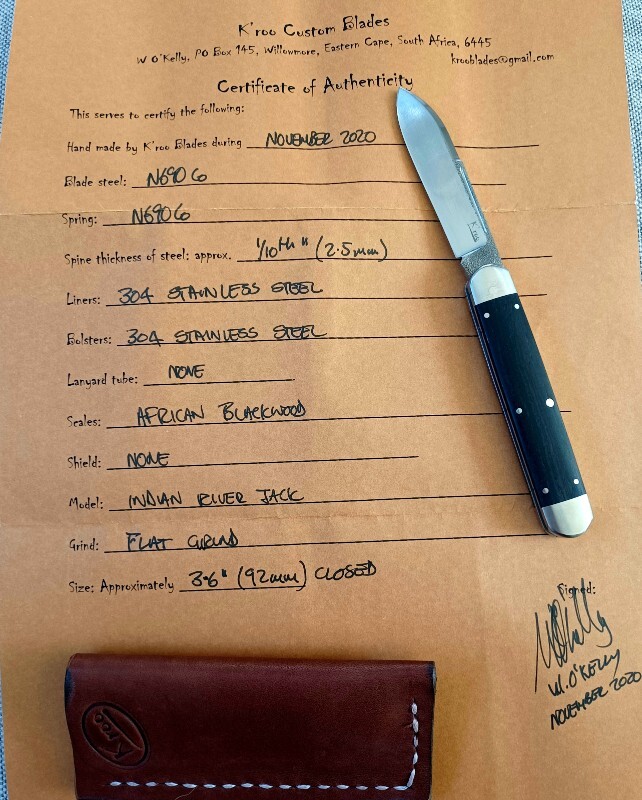 K'roo Custom Blades
W O'Kelly, PO Box 145, Willowmore, Eastern Cape, South Africa, 6445
krooblades@gmail.com
Certificate of Authenticity
This serves to certify the following:
Hand made by K'roo Blades during NOVEMBER 2020
Blade steel: N690 Co
Spring: N690 Co
Spine thickness of steel: approx. 1/10th " (2.5mm)
Liners: 304 STAINLESS STEEL
Bolsters: 304 STAINLESS STEEL
Lanyard tube: NONE
Scales: AFRICAN BLACKWOOD
Shield: NONE
Model: INDIAN RIVER JACK
Grind: FLAT GRIND
Size: Approximately 3.6" (92mm) CLOSED
Signed:
W. O'KELLY
NOVEMBER 2020
K'roo
K'roo